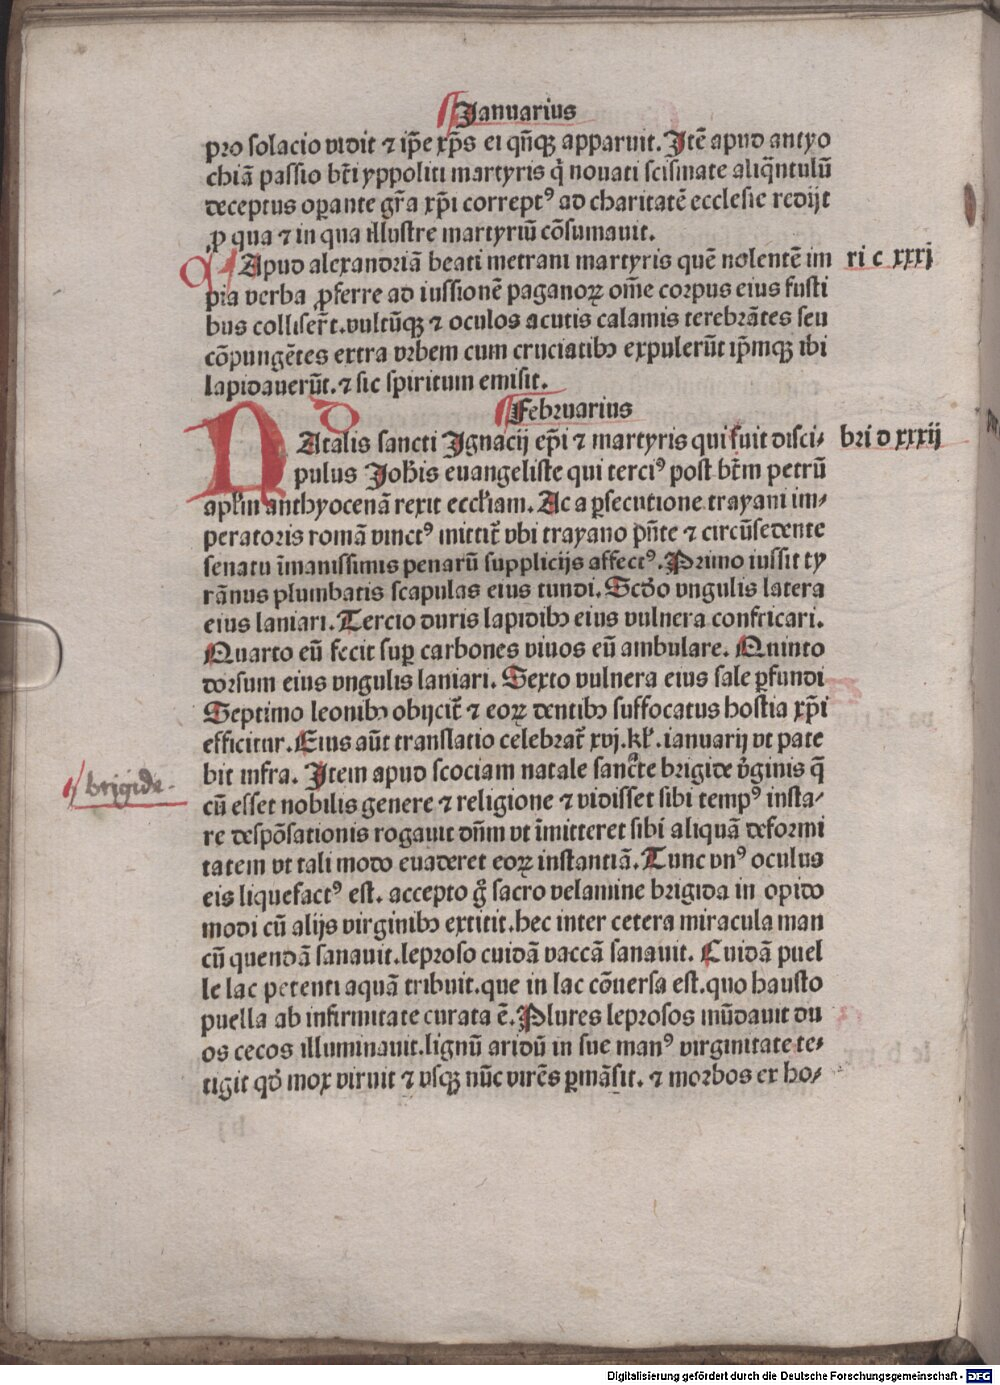 Januarius
pro solacio vidit ⁊ ip̄e xp̄s ei qn̄qꝫ apparuit. Itē apud antyo
chiā passio bt̄i yppoliti martyris q̇ nouati scismate aliq̄ntulū
deceptus oꝑante gr̄a xp̄i correptꝰ ad charitatē ecclesie redijt
ꝓ qua ⁊ in qua illustre martyriū cōsumauit.
Apud alexandriā beati metrani martyris quē nolentē im ri c xxxj
pia verba ꝓferre ad iussionē paganoꝝ om̄e corpus eius fusti
bus colliser̄t. vultūqꝫ ⁊ oculos acutis calamis terebrātes seu
cōpungētes extra vrbem cum cruciatibꝫ expulerūt ip̄mqꝫ ibi
lapidauerūt. ⁊ sic spiritum emisit.
Februarius
NAtalis sancti Ignacij ep̄i ⁊ martyris qui fuit disci- bri d xxxij
pulus Joh̄is euangeliste qui terciꝰ post bt̄m petrū
apl̄m anthyocenā rexit eccl̄iam. Ac a ꝑsecutione trayani im-
peratoris romā vinctꝰ mittit̄ vbi trayano pn̄te ⁊ circūsedente
senatu īmanissimis penarū supplicijs affectꝰ. Primo iussit ty
rānus plumbatis scapulas eius tundi. Scd̄o vngulis latera
eius laniari. Tercio duris lapidibꝫ eius vulnera confricari.
Quarto eū fecit suꝑ carbones viuos eū ambulare. Quinto
dorsum eius vngulis laniari. Sexto vulnera eius sale ꝑfundi
Septimo leonibꝫ obijcit̄ ⁊ eoꝝ dentibꝫ suffocatus hostia xp̄i
efficitur. Eius aūt translatio celebrat̄ xvj. kl̄. ianuarij vt pate
bit infra. Item apud scociam natale sancte brigide v̄ginis q̄
brigide.
cū esset nobilis genere ⁊ religione ⁊ vidisset sibi tempꝰ insta-
re despōsationis rogauit dn̄m vt īmitteret sibi aliquā deformi
tatem vt tali modo euaderet eoꝝ instantiā. Tunc vnꝰ oculus
eis liquefactꝰ est. accepto g̊ sacro velamine brigida in opido
modi cū alijs virginibꝫ extitit. hec inter cetera miracula man
cū quendā sanauit. leproso cuidā vaccā sanauit. Cuidā puel
le lac petenti aquā tribuit. que in lac cōuersa est. quo hausto
puella ab infirmitate curata ē. Plures leprosos mūdauit du
os cecos illuminauit. lignū aridū in sue manꝰ virginitate te-
tigit qd̄ mox viruit ⁊ vsqꝫ nūc virēs ꝑmāsit. ⁊ morbos ex ho-
Digitalisierung gefördert durch die Deutsche Forschungsgemeinschaft - DFG